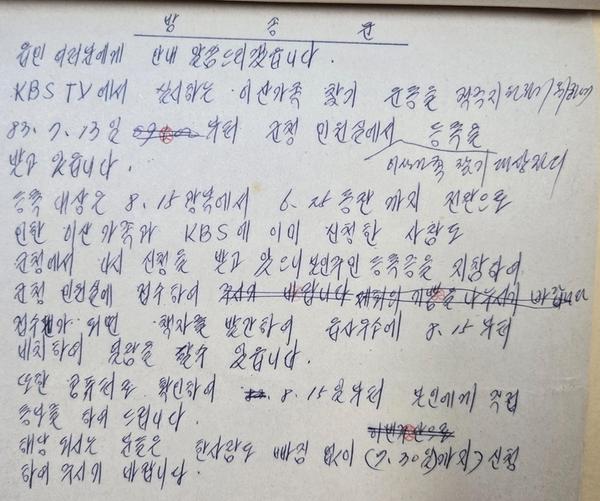 방 송 문
읍민 여러분에게 안내 말씀드리겠읍니다.
KBS TV에서 실시하는 이산가족 찾기 운동을 적극지원하기 위하여
83. 7. 13일 부터 군청 민원실에서 등록을
받고 있읍니다. 이산가족 찾기 대상자의
등록 대상은 8. 15 광복에서 6. 25 동란 까지 전란으로
인한 이산가족과 KBS에 이미 신청한 사람도
군청에서 다시 신청을 받고 있으니 본인주민등록증을 지참하여
군청 민원실에 접수하여 재회의 기쁨을 나누시기 바랍니다
접수 되면 책자를 발간하여 읍사무소에 8. 15 부터
비치하여 열람을 할수 있읍니다.
또한 컴퓨터로 확인하여 8. 15일부터 본인에게 직접
통보를 하여 드립니다.
해당 되시는 분들은 한사람도 빠짐 없이 (7. 30일까지) 신청
하여 주시기 바랍니다.